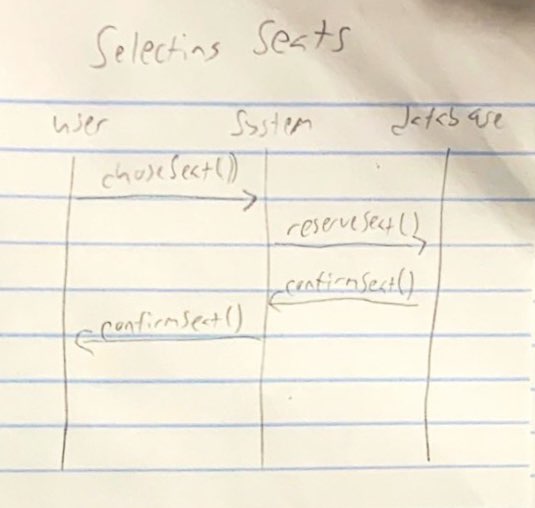 Selecting Seats
user System database
choseSeat()
reserveSeat()
confirmSeat()
confirmSeat()